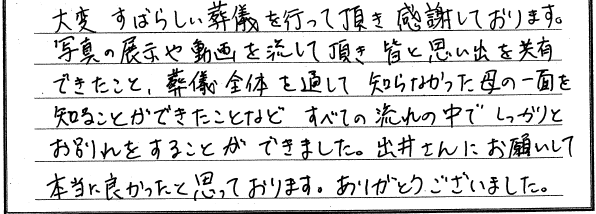 大変 すばらしい葬儀を行って頂き 感謝しております。
写真の展示や動画を流して頂き 皆と思い出を共有
できたこと、葬儀全体を通して 知らなかった母の一面を
知ることができたことなど すべての流れの中で しっかりと
お別れをすることが できました。出井さんに お願いして
本当に良かったと思っております。ありがとうございました。